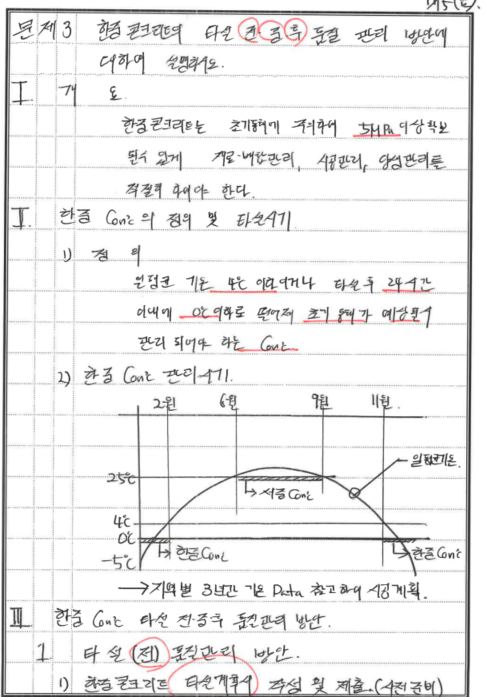 문제 3 한중콘크리트의 타설 전 중 후 품질 관리 방안에
대하여 설명하시오.
I 개 요
한중콘크리트는 초기동해에 주의하여 5MPa 이상 확보
될수 있게 재료·배합관리, 시공관리, 양생관리를
적절히 하여야 한다.
II. 한중 Conc의 정의 및 타설시기
1) 정 의
일평균 기온 4℃ 이하이거나 타설 후 24시간
이내에 0℃이하로 떨어져 초기 동해가 예상될시
관리 되어야 하는 Conc
2) 한중 Conc 관리시기.
2월 6월 9월 11월.
일평균기온.
25℃
→서중 Conc
4℃
0℃
-5℃
→한중Conc →한중 Conc
→지역별 3년간 기온 Data 참고하여 시공계획.
III 한중 Conc 타설 전·중·후 품질관리 방안.
1 타설 (전) 품질관리 방안.
1) 한중콘크리트 타설계획서 작성 및 제출.(사전준비)